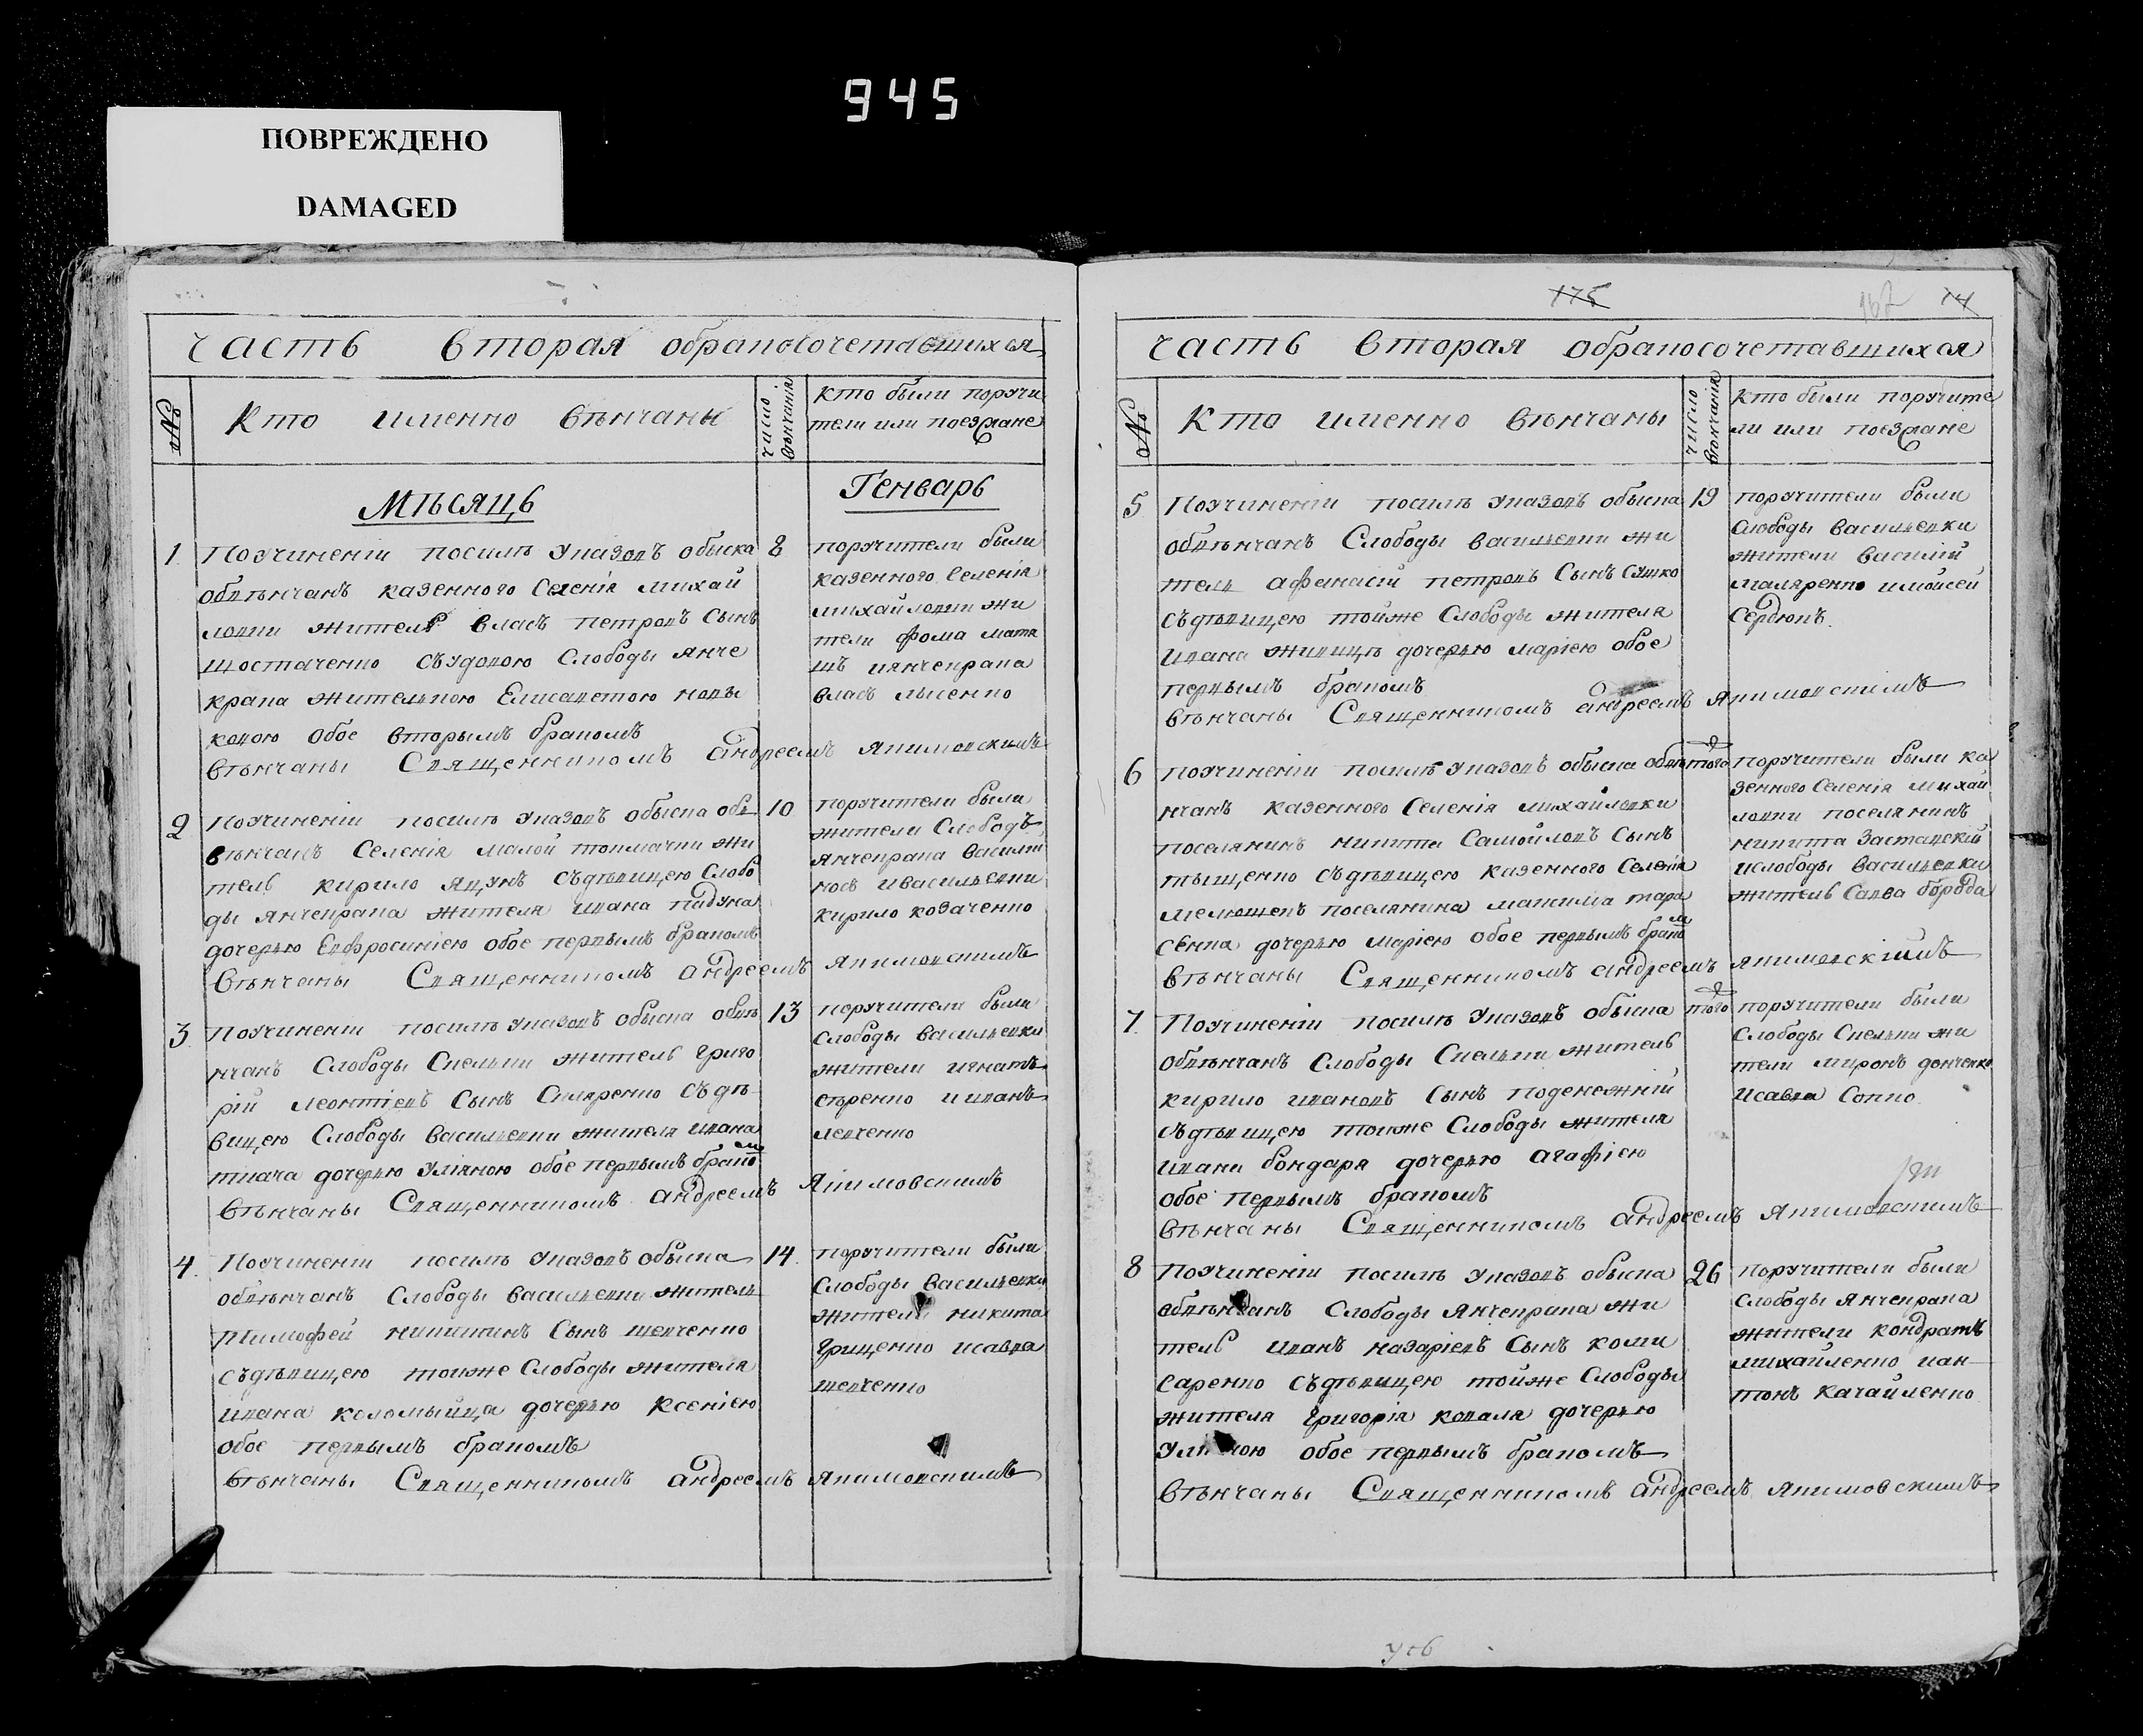 945
ПОВРЕЖДЕНО
DAMAGED
часть вторая обракосочетавшихся
№
Кто именно вѣнчаны
число вѣнчанія
Кто были поручи
тели или поезжане
Мѣсяцъ
Генварь
1.
По учиненіи посилѣ указовъ обыска
обвѣнчанъ казенного Селенія михай
ловки житель власъ петровъ Сынъ
шостаченко съ удовою Слободы янче
крака жителькою Елисаветою новы
ковою обое вторымъ бракомъ
вѣнчаны Священникомъ андреемъ якимовскимъ
8
поручители были
казенного Селенія
михайловки жи
тели фома мата
шъ иянчекрака
власъ лысенко
2
По учиненіи посилѣ указовъ обыска обв
вѣнчанъ Селенія малой токмачки жи
тель кирило яцунъ съ дѣвицею Слобо
ды янчекрака жителя ивана
дочерью Евфросиніею обое первымъ бракомъ
вѣнчаны Священникомъ андреемъ якимовскимъ
10
поручители были
жители Слободъ
янчекрака василій
носъ ивасильевки
кирило козаченко
3
По учиненіи посилѣ указовъ обыска обвѣ
нчанъ Слободы Скельки житель григо
рій леонтіевъ Сынъ Скляренко съ дѣ
вицею Слободы васильевки жителя ивана
ткача дочерью уліяною обое первымъ бракомъ
вѣнчаны Священникомъ андреемъ якимовскимъ
13
поручители были
Слободы васильевки
жители игнатъ
иванъ
левченко
4.
По учиненіи посилѣ указовъ обыска
обвѣнчанъ Слободы васильевки житель
тимофей никитинъ Сынъ шевченко
съ дѣвицею тойже Слободы жителя
ивана коломыйца дочерью ксеніею
обое первымъ бракомъ
вѣнчаны Священникомъ андреемъ якимовскимъ
14.
поручители были
Слободы васильевки
жители никита
грищенко исавва
шевченко
175
167
14
часть вторая обракосочетавшихся
№
Кто именно вѣнчаны
число вѣнчанія
Кто были поручите
ли или поезжане
5
По учиненіи посилѣ указовъ обыска
обвѣнчанъ Слободы васильевки жи
тель афанасій петровъ Сынъ Сушко
съ дѣвицею тойже Слободы жителя
ивана дочерью маріею обое
первымъ бракомъ
вѣнчаны Священникомъ андреемъ якимовскимъ
19
поручители были
Слободы васильевки
жители василій
маляренко имойсей
Сердюкъ.
6
По учиненіи посилѣ указовъ обыска обвѣ
нчанъ казенного Селенія михайловки
поселянинъ никита Самойловъ Сынъ
тыщенко съ дѣвицею казенного Селенія
поселянина максима тара
сенка дочерью маріею обое первымъ бракомъ
вѣнчаны Священникомъ андреемъ якимовскіимъ
того
поручители были ка
зенного Селенія михай
ловки поселянинъ
никита Заставскій
ислободы васильевки
житель Савва борода
7.
По учиненіи посилѣ указовъ обыска
обвѣнчанъ Слободы Скельки житель
кирило ивановъ Сынъ поденежній
съ дѣвицею тойже Слободы жителя
ивана бондаря дочерью агафіею
обое первымъ бракомъ
вѣнчаны Священникомъ андреемъ якимовскимъ
того
поручители были
Слободы Скельки жи
тели миронъ донченко
исавва Сопко
8
По учиненіи посилѣ указовъ обыска
обвѣнчанъ Слободы янчекрака жи
тель иванъ назаріевъ Сынъ коми
саренко съ дѣвицею тойже Слободы
жителя григорія коваля дочерью
обое первымъ бракомъ
вѣнчаны Священникомъ андреемъ якимовскимъ
26
поручители были
Слободы янчекрака
жители кондратъ
михайленко иан
тонъ качайленко